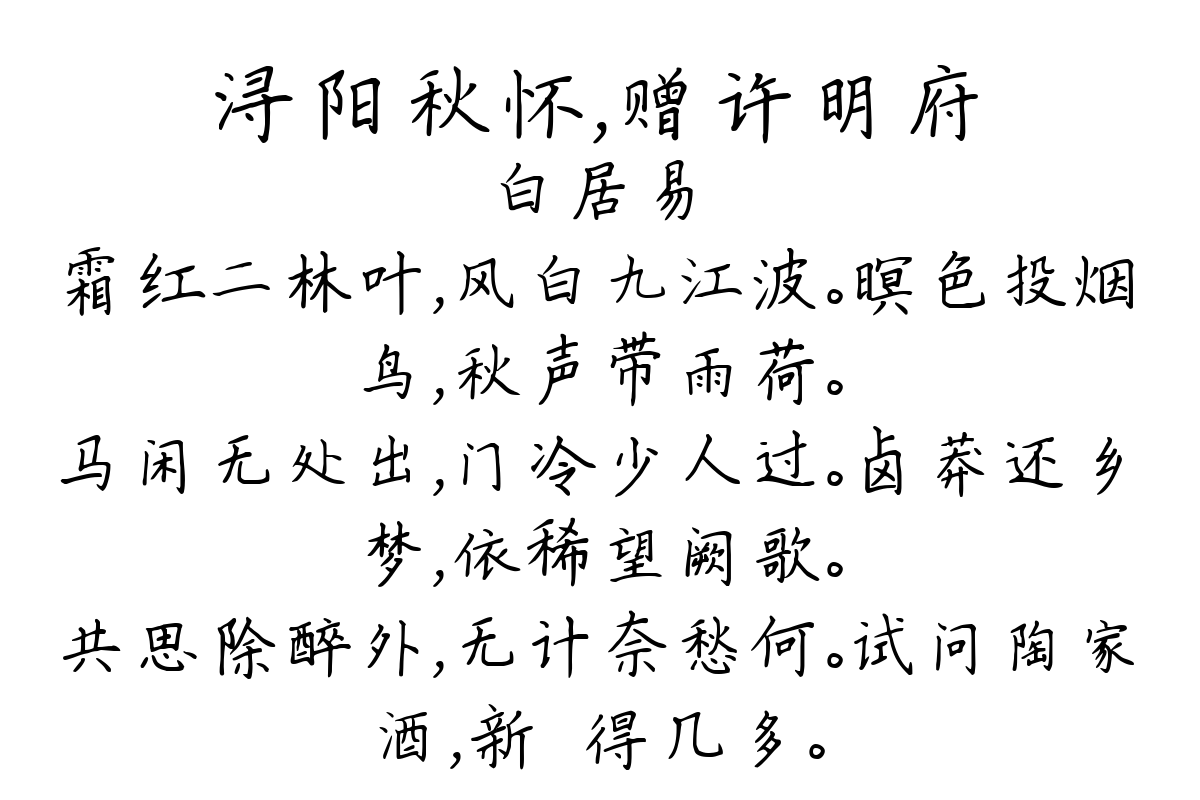 浔阳秋怀,赠许明府
白居易
霜红二林叶,风白九江波。暝色投烟
鸟,秋声带雨荷。
马闲无处出,门冷少人过。卤莽还乡
梦,依稀望阙歌。
共思除醉外,无计奈愁何。试问陶家
酒,新 得几多。